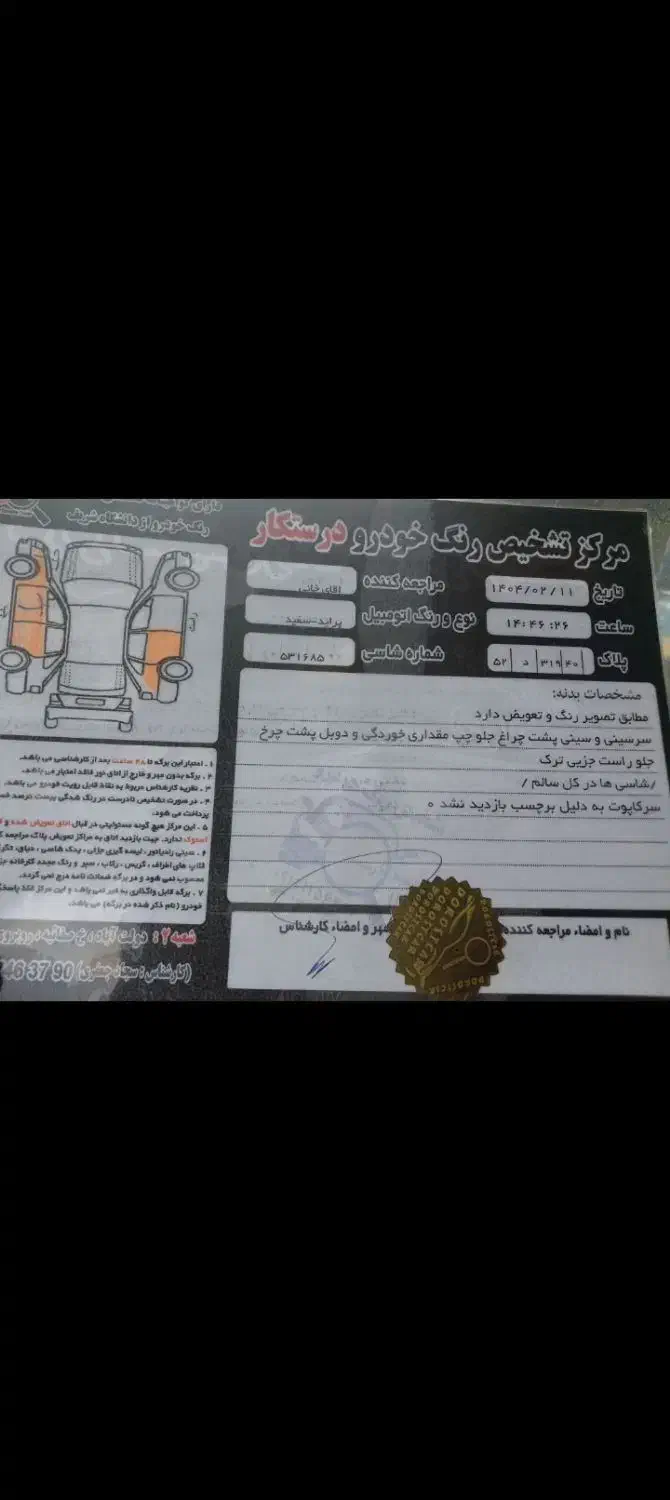 رنگ خودرو از دانشگاه شریف
مرکز تشخیص رنگ خودرو درستکار
تاریخ ۱۴۰۴/۰۲/۱۱
مراجعه کننده آقای خانی
ساعت ۱۴:۴۶:۲۶
نوع و رنگ اتومبیل پراید-سفید
پلاک ۵۲ د ۳۱۹ ۴۰
شماره شاسی ۵۳۱۶۸۵
مشخصات بدنه:
مطابق تصویر رنگ و تعویض دارد
سرسینی و سینی پشت چراغ جلو چپ مقداری خوردگی و دوبل پشت چرخ
جلو راست جزیی ترک
/شاسی ها در کل سالم /
سرکاپوت به دلیل برچسب بازدید نشد ٥
نام و امضاء مراجعه کننده
مهر و امضاء کارشناس
راست
۱ . اعتبار این برگه تا ۴۸ ساعت بعد از کارشناسی می باشد.
۲ . برگه بدون مهر و خارج از اتاق دور فاقد اعتبار می باشد.
۳ . نظریه کارشناس مربوط به نقاط قابل رویت خودرو می باشد.
۴ . در صورت تشخیص نادرست در رنگ شدگی بیست درصد
پرداخت می شود.
۵ . این مرکز هیچ گونه مسئولیتی در قبال اتاق تعویض شده و
استوک ندارد. جهت بازدید اتاق به مراکز تعویض پلاک مراجعه
۶ . سینی رادیاتور ، لیسه گیری جزئی ،
قالپاق های اطراف ، گریس ، رکاب ، سپر و رنگ مجدد کارخانه
محسوب نمی شود و در برگه ضمانت نامه درج نمی گردد.
۷ . برگه قابل واگذاری به غیر نمی باشد و این مرکز فقط
خودرو (نام ذکر شده در برگه) می باشد.
شعبه ۲ : دولت آباد ، خ صفائیه ، روبروی
(کارشناس : سجاد جعفری) 90 37 46
DOROSTCAR